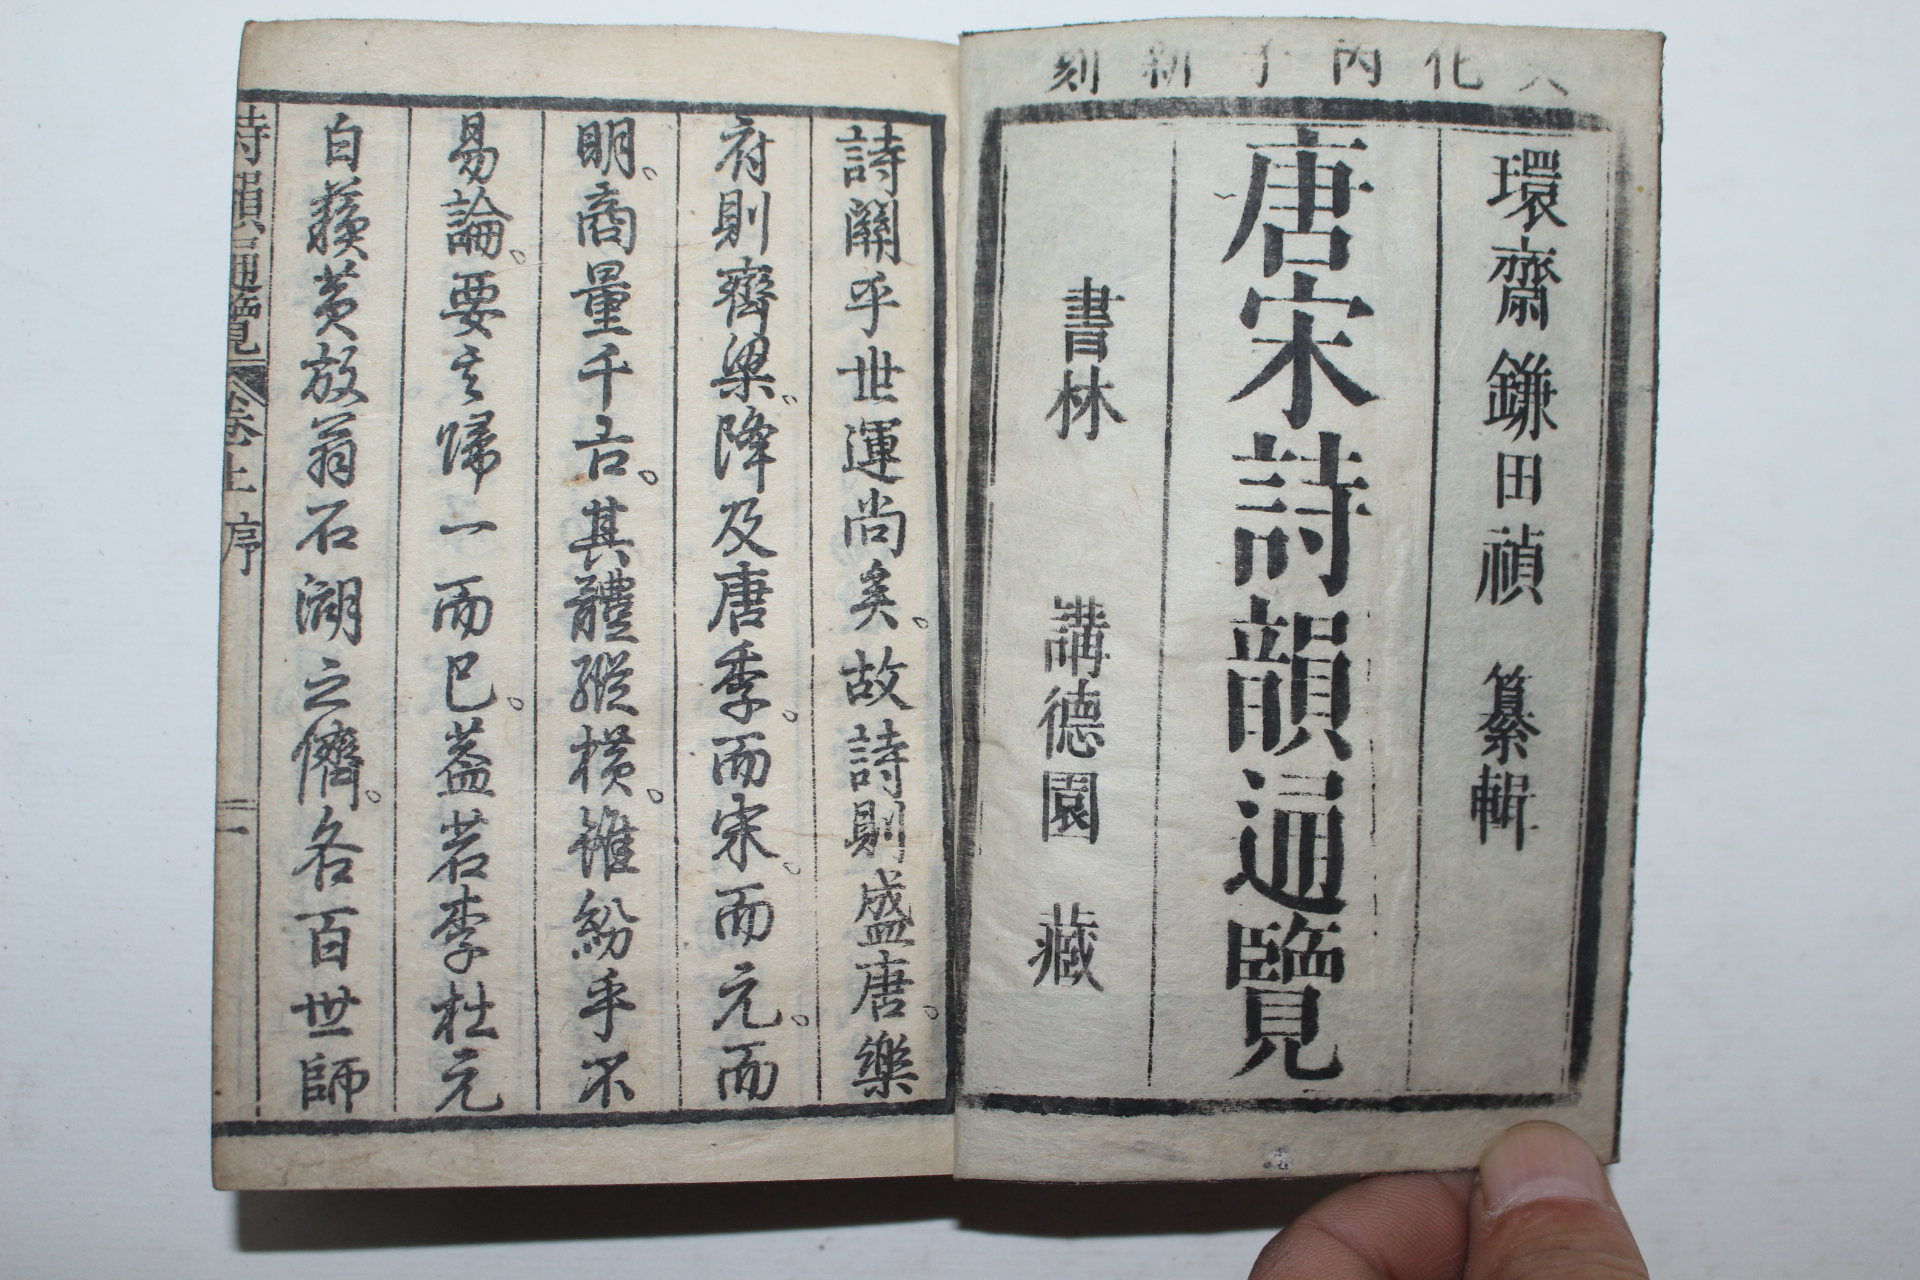 文化丙子新刻
環齋鎌田禎 纂輯
唐宋詩韻通覽
書林 講德園 藏
詩關乎世運尚矣。故詩則盛唐。樂
府則齊梁。降及唐季。而宋。而元。而
明。商量千古。其體縱横。雖紛乎不
易論。要之歸一而已。蓋若李杜元
白蘇黄放翁石湖之儕。各百世師
詩韻通覽 卷上 序 一